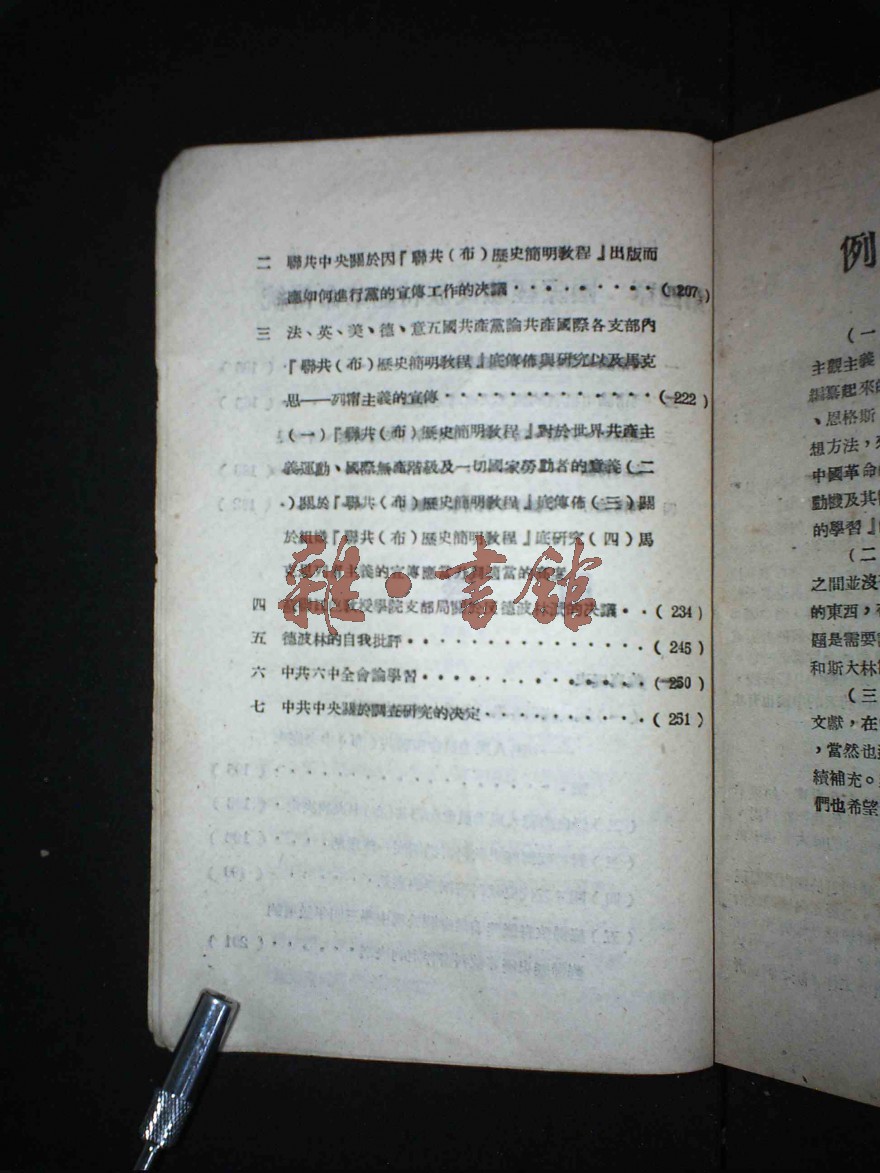 二 聯共中央關於因『聯共(布)歷史簡明教程』出版而
應如何進行黨的宣傳工作的決議・・・・・・・・・(207)
三 法、英、美、德、意五國共產黨論共產國際各支部內
『聯共(布)歷史簡明教程』底傳佈與研究以及馬克
思——列寧主義的宣傳・・・・・・・・・・・・・(222)
(一)『聯共(布)歷史簡明教程』對於世界共產主
義運動、國際無產階級及一切國家勞動者的意義(二
)關於『聯共(布)歷史簡明教程』底傳佈(三)關
於組織『聯共(布)歷史簡明教程』底研究(四)馬
主義的宣傳應當
四 教授學院支部局關於 德波林 的決議・・(234)
五 德波林的自我批評・・・・・・・・・・・・・(245)
六 中共六中全會論學習・・・・・・・・・・・・(250)
七 中共中央關於調查研究的決定・・・・・・・・・(251)
雜・書館
例
(一
主觀主義
編纂起來的
、恩格斯
想方法,
中國革命
動態及其
的學習『
(二
之間並沒
的東西,
題是需要
和斯大林
(三
文獻,在
,當然也
續補充。
們也希望